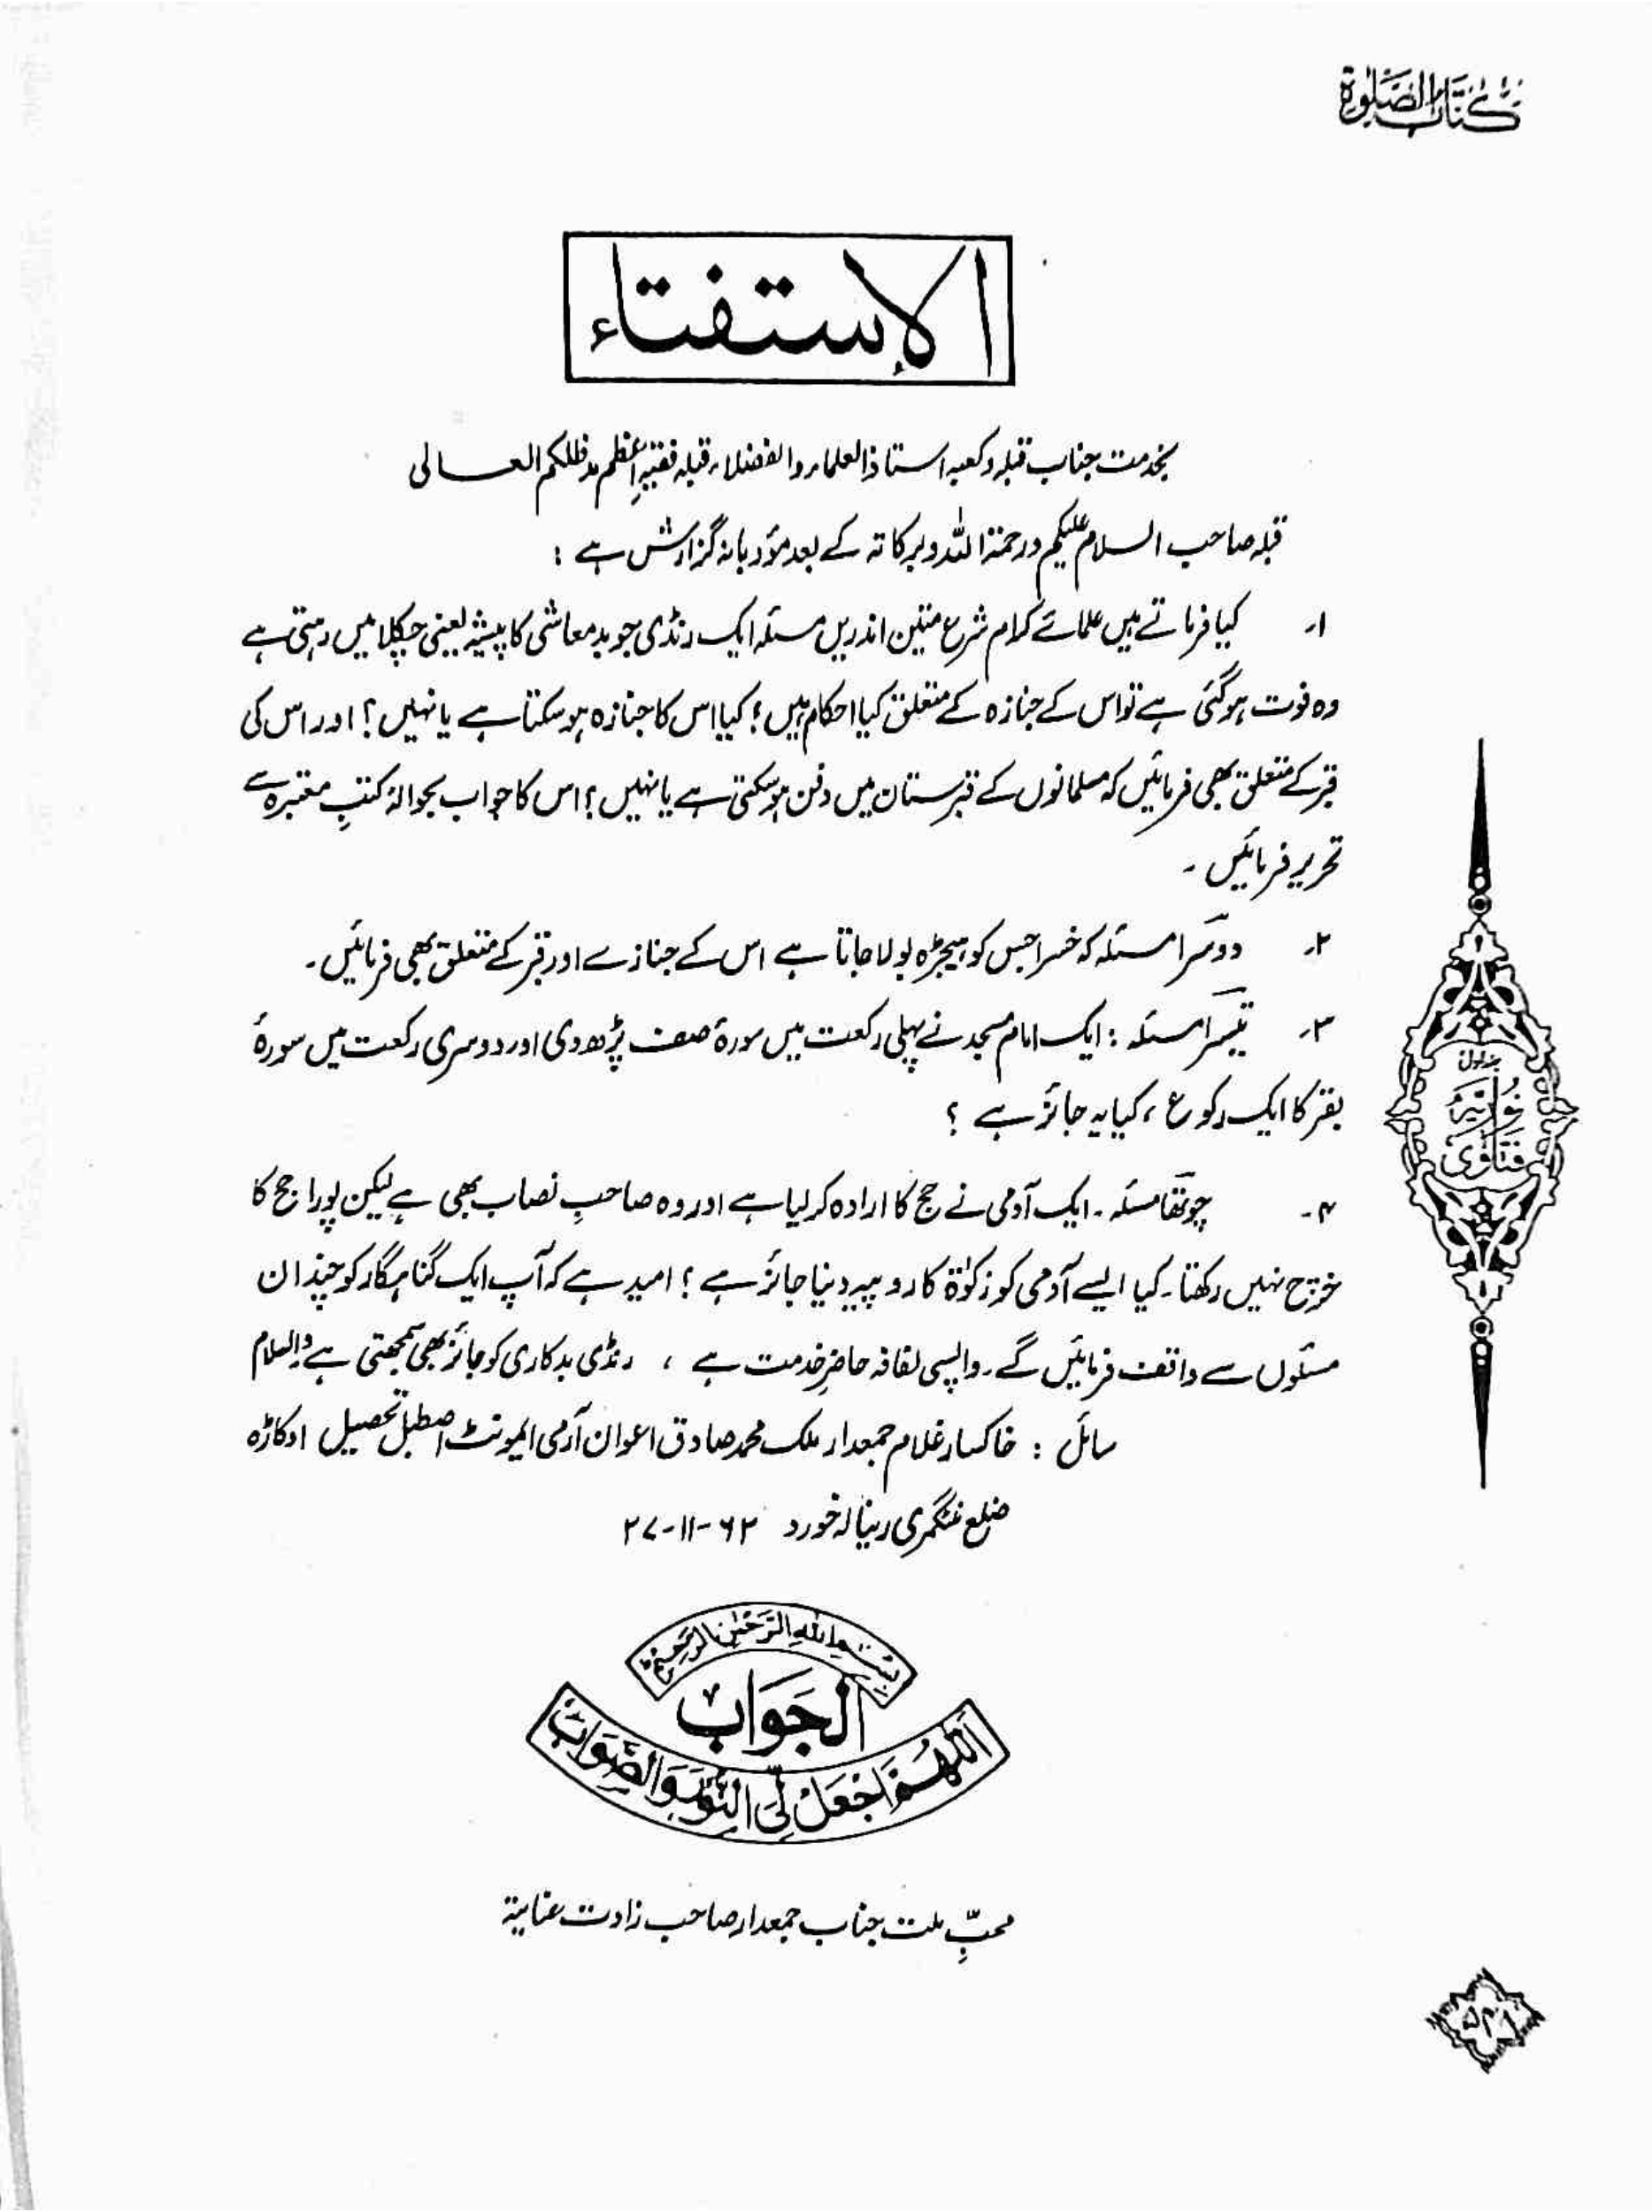 كتاب الصلوة
الاستفتاء
بخدمت جناب قبلہ و کعبہ استاذ العلماء والفضلاء قبلہ فقیہِ اعظم مدظلکم العالی
قبلہ صاحب السلام علیکم ورحمۃ اللہ وبرکاتہ کے بعد مؤدبانہ گزارش ہے :
۱۔ کیا فرماتے ہیں علمائے کرام شرع متین اندریں مسئلہ ایک رنڈی جو بدمعاشی کا پیشہ یعنی چکلا میں رہتی ہے
وہ فوت ہوگئی ہے تو اس کے جنازہ کے متعلق کیا احکام ہیں؟ کیا اس کا جنازہ ہو سکتا ہے یا نہیں؟ اور اس کی
قبر کے متعلق بھی فرمائیں کہ مسلمانوں کے قبرستان میں دفن ہوسکتی ہے یا نہیں؟ اس کا جواب بحوالۂ کتبِ معتبرہ سے
تحریر فرمائیں ۔
۲۔ دوسرا مسئلہ کہ خسرا جس کو ہیجڑہ بولا جاتا ہے اس کے جنازے اور قبر کے متعلق بھی فرمائیں۔
۳۔ تیسرا مسئلہ : ایک امام مسجد نے پہلی رکعت میں سورۃ صف پڑھ دی اور دوسری رکعت میں سورۂ
بقر کا ایک رکوع ، کیا یہ جائز ہے ؟
۴۔ چوتھا مسئلہ ۔ ایک آدمی نے حج کا ارادہ کر لیا ہے اور وہ صاحبِ نصاب بھی ہے لیکن پورا حج کا
خرچ نہیں رکھتا۔ کیا ایسے آدمی کو زکوٰۃ کا روپیہ دینا جائز ہے؟ امید ہے کہ آپ ایک گناہگار کو چند ان
مسئلوں سے واقف فرمائیں گے۔ واپسی لفافہ حاضرِ خدمت ہے ، رنڈی بدکاری کو جائز بھی سمجھتی ہے والسلام
سائل : خاکسار غلام جمعدار ملک محمد صادق اعوان آرمی ایمونٹ اصطبل تحصیل اوکاڑہ
ضلع منٹگمری رینالہ خورد ۶۲-۱۱-۲۷
جلد اول
نوریہ
فتاوی
بسم الله الرحمن الرحيم
الجواب
اللهم اجعل لى النور والصواب
محبِّ ملت جناب جمعدار صاحب زادت عنایتہ